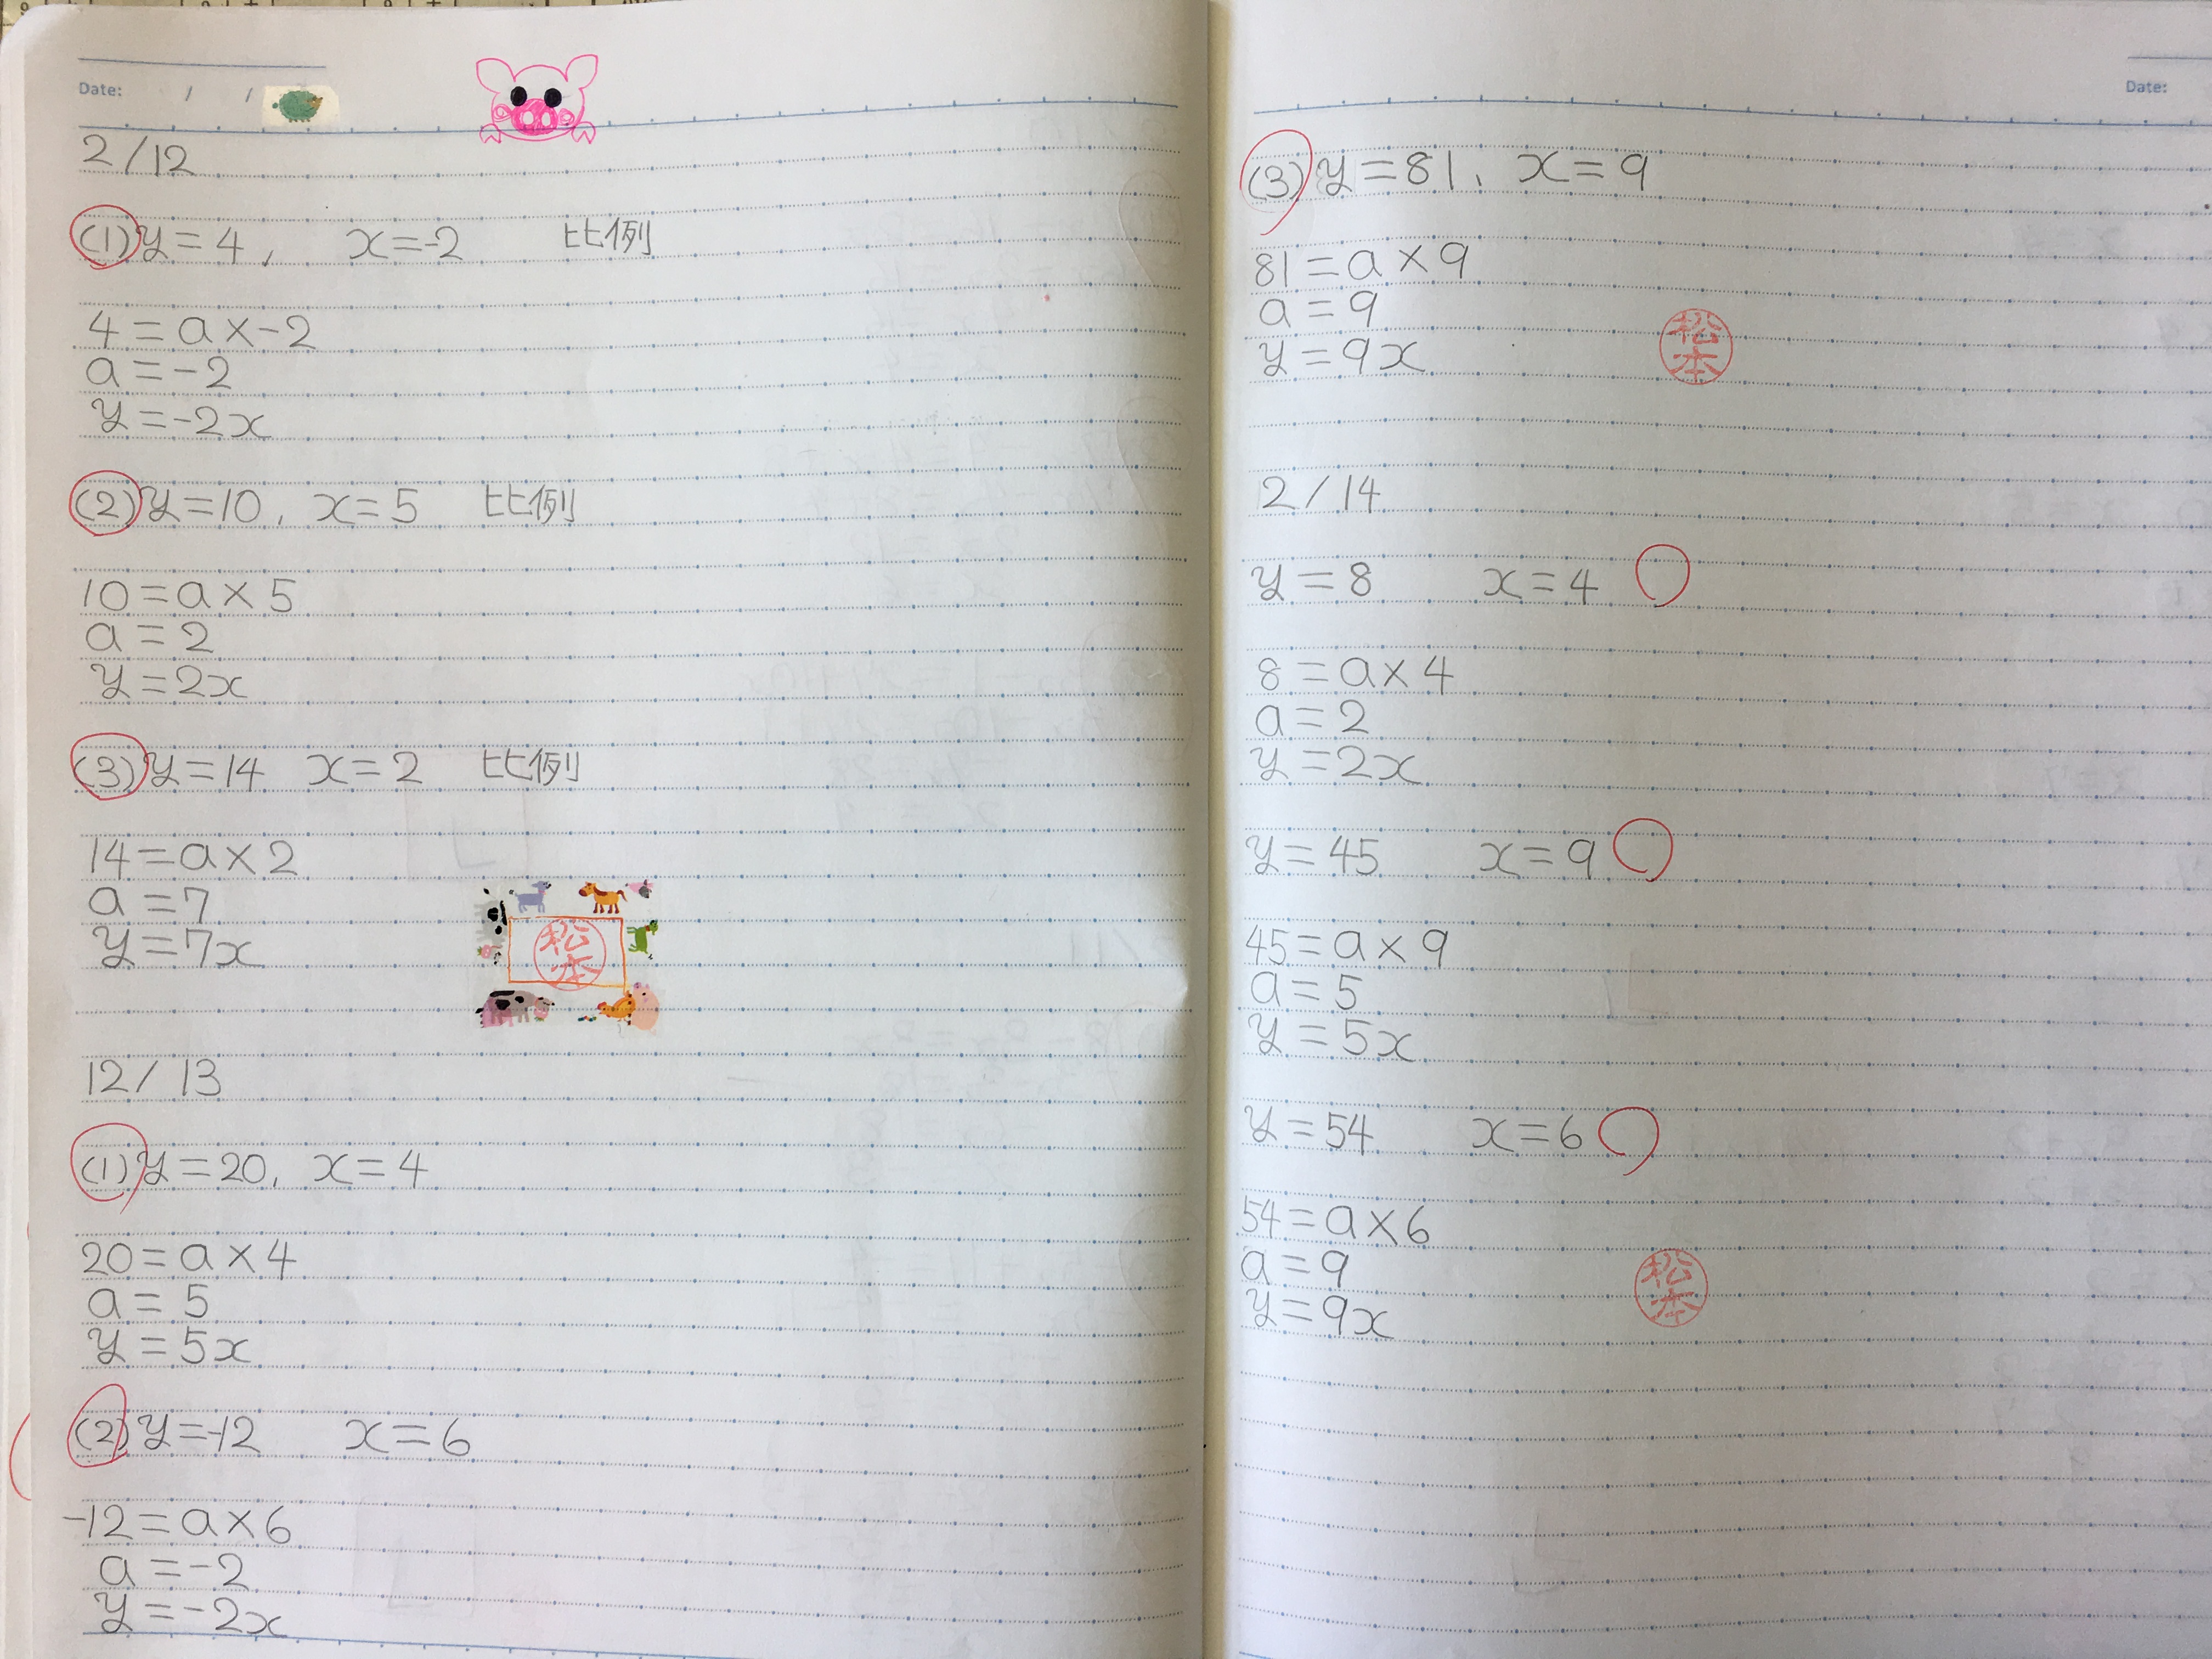 Date: / /
2/12
(1) y=4, x=-2 比例
4=a×-2
a=-2
y=-2x
(2) y=10, x=5 比例
10=a×5
a=2
y=2x
(3) y=14 x=2 比例
14=a×2
a=7
y=7x
松本
12/13
(1) y=20, x=4
20=a×4
a=5
y=5x
(2) y=-12 x=6
-12=a×6
a=-2
y=-2x
Date:
(3) y=81, x=9
81=a×9
a=9
y=9x
松本
2/14
y=8 x=4
8=a×4
a=2
y=2x
y=45 x=9
45=a×9
a=5
y=5x
y=54 x=6
54=a×6
a=9
y=9x
松本